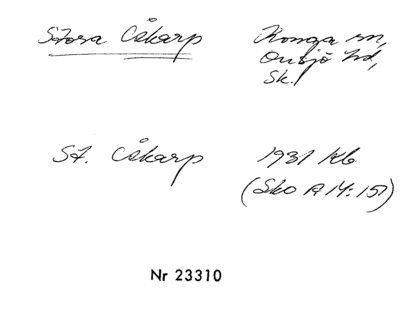 Stora Åkarp
Konga sn,
Onsjö hd,
Sk.
St. Åkarp
1931 Kb
(Sko A 14:151)
Nr 23310